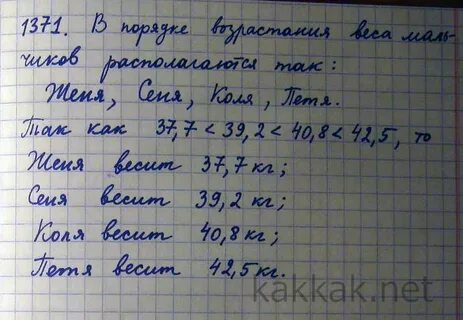 1371. В порядке возрастания веса маль-
чиков располагаются так:
Женя, Сеня, Коля, Петя.
Так как 37,7 < 39,2 < 40,8 < 42,5, то
Женя весит 37,7 кг;
Сеня весит 39,2 кг;
Коля весит 40,8 кг;
Петя весит 42,5 кг.
kakkak.net